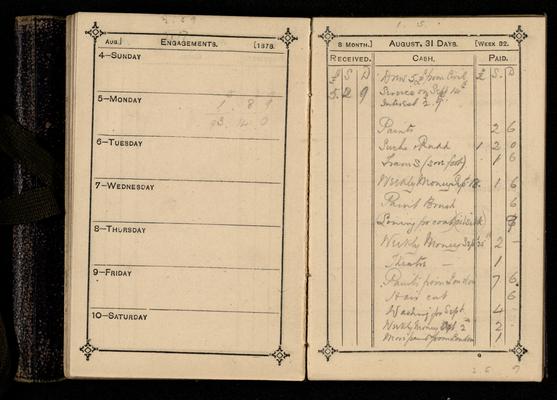 Aug.] Engagements. [1878.
4-Sunday
5-Monday
1. 8 9
6-Tuesday
7-Wednesday
8-Thursday
9-Friday
10-Saturday
8 Month.] August, 31 Days. [Week 32.
Received. Cash. Paid.
£ S D from Civil £ S. D
5 2 9 Service on Sept 14th
Interest 2.9
Paints 2 6
1 2 0
Trams 1 6
Weekly Money Sept 18. 1 6
Paint Brush 6
for coat
Weekly Money Sept 25 2 -
Theatre - 1
Paints from London 7 6
Hair cut 6
Washing for Sept 4
Weekly Money Oct 2 2
More paints from London 1